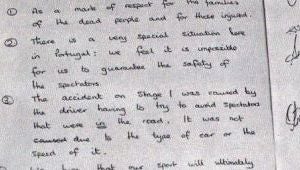 ① As a mark of respect for the families
of the dead people and for those injured.
② There is a very special situation here
in Portugal: we feel it is impossible
for us to guarantee the safety of
the spectators
③ The accident on stage 1 was caused by
the driver having to try to avoid spectators
that were in the road. It was not
due to the type of car or the
speed of it.
that our sport will ultimately